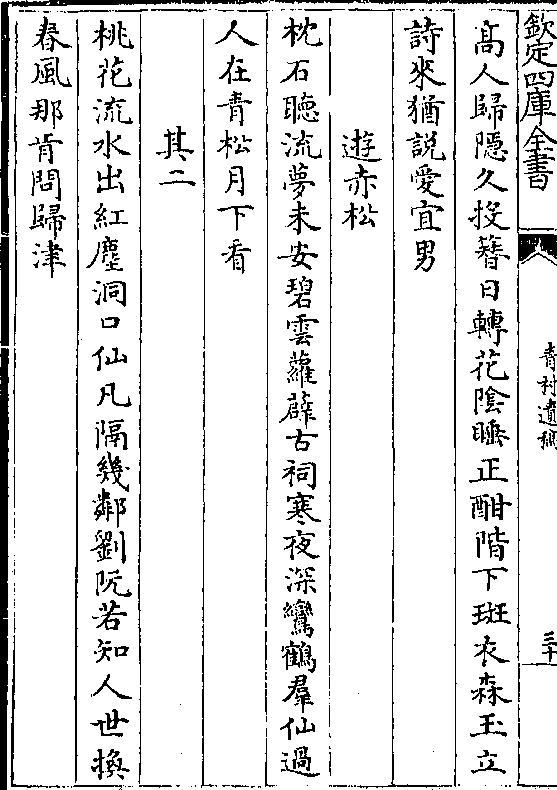 欽定四庫全書
青村遺稿
三十
高人歸隱久投簪日轉花陰睡正酣階下斑衣森玉立
詩來猶説愛宜男
遊赤松
枕石聽流夢未安碧雲蘿薜古祠寒夜深鸞鶴羣仙過
人在青松月下看
其二
桃花流水出紅塵洞口仙凡隔幾鄰劉阮若知人世換
春風那肯問歸津